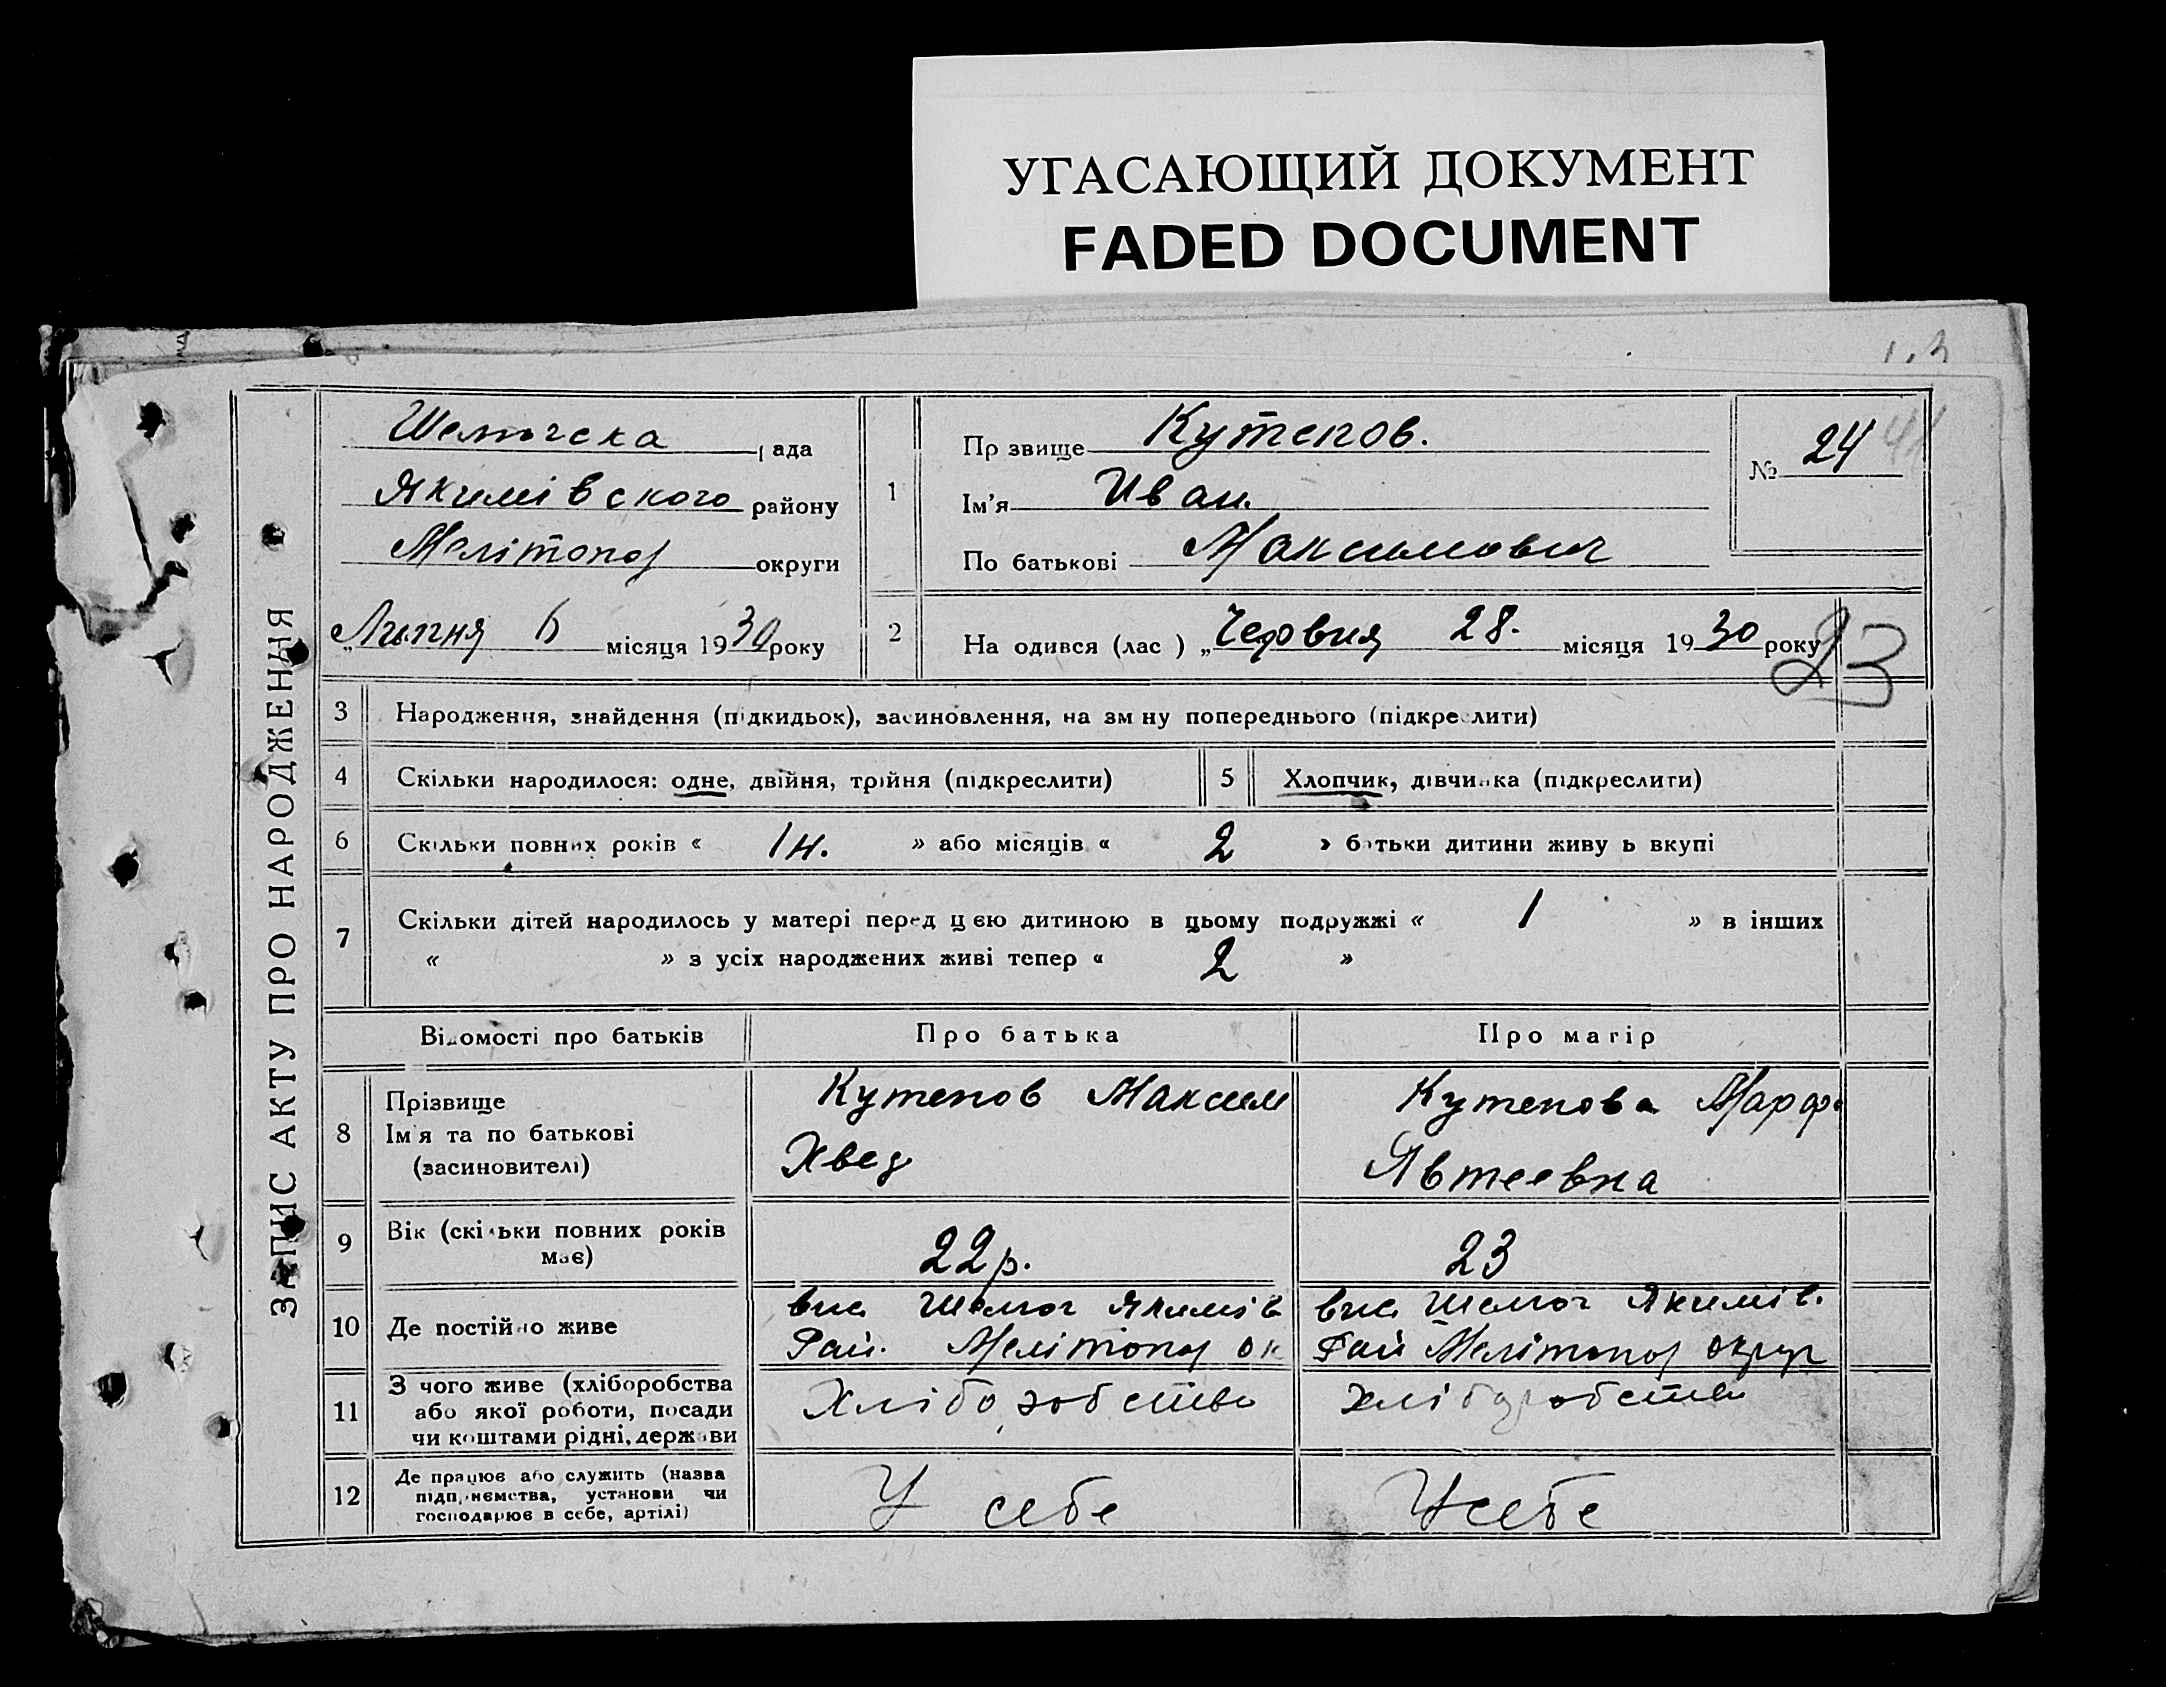 УГАСАЮЩИЙ ДОКУМЕНТ
FADED DOCUMENT
ЗАПИС АКТУ ПРО НАРОДЖЕННЯ
рада
Якимівского району
Мелітопол округи
„Липня 6 місяця 1930 року
1
Пр звище Кутепов.
Ім'я Иван.
По батькові Максимович
№ 24
2
На одився (лас ) „Червня 28. місяця 1930 року
23
3 Народження, знайдення (підкидьок), засиновлення, на зм ну попереднього (підкреслити)
4 Скільки народилося: одне, двійня, трійня (підкреслити)
5 Хлопчик, дівчинка (підкреслити)
6 Скільки повних років « 1 н. » або місяців « 2 » батьки дитини живу ь вкупі
7 Скільки дітей народилось у матері перед цією дитиною в цьому подружжі « 1 » в інших
« » з усіх народжених живі тепер « 2 »
Відомості про батьків
Про батька
Про матір
8 Прізвище
Ім'я та по батькові
(засиновителі)
Кутепов Максим
Хвед
Кутепова Марф.
Явтеевна
9 Вік (скільки повних років
має)
22 р.
23
10 Де постійно живе
Якимів
Рай. Мелітопол ок
Якимів.
Рай Мелітопол округ
11 З чого живе (хліборобства
або якої роботи, посади
чи коштами рідні, держави
Хліборобство
хліборобство
12 Де працює або служить (назва
підприємства, установи чи
господарює в себе, артілі)
У себе
У себе